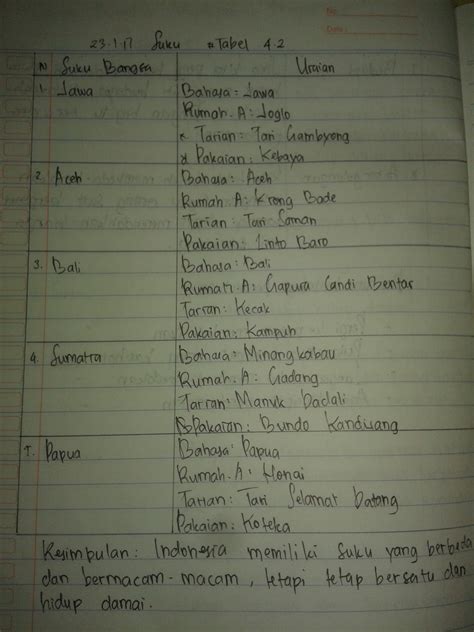 No:
Date:
23-1-17 Suku #Tabel 4.2
N Suku Bangsa Uraian
1. Jawa Bahasa: Jawa
Rumah. A: Joglo
Tarian: Tari Gambyong
Pakaian: Kebaya
2. Aceh Bahasa: Aceh
Rumah A: Krong Bade
Tarian: Tari Saman
Pakaian: Linto Baro
3. Bali Bahasa: Bali
Rumah A: Gapura Candi Bentar
Tarian: Kecak
Pakaian: Kampuh
4. Sumatra Bahasa: Minangkabau
Rumah. A: Gadang
Tarian: Manuk Dadali
Pakaian: Bundo Kanduang
5. Papua Bahasa: Papua
Rumah. A: Honai
Tarian: Tari Selamat Datang
Pakaian: Koteka
Kesimpulan: Indonesia memiliki suku yang berbeda
dan bermacam-macam, tetapi tetap bersatu dan
hidup damai.